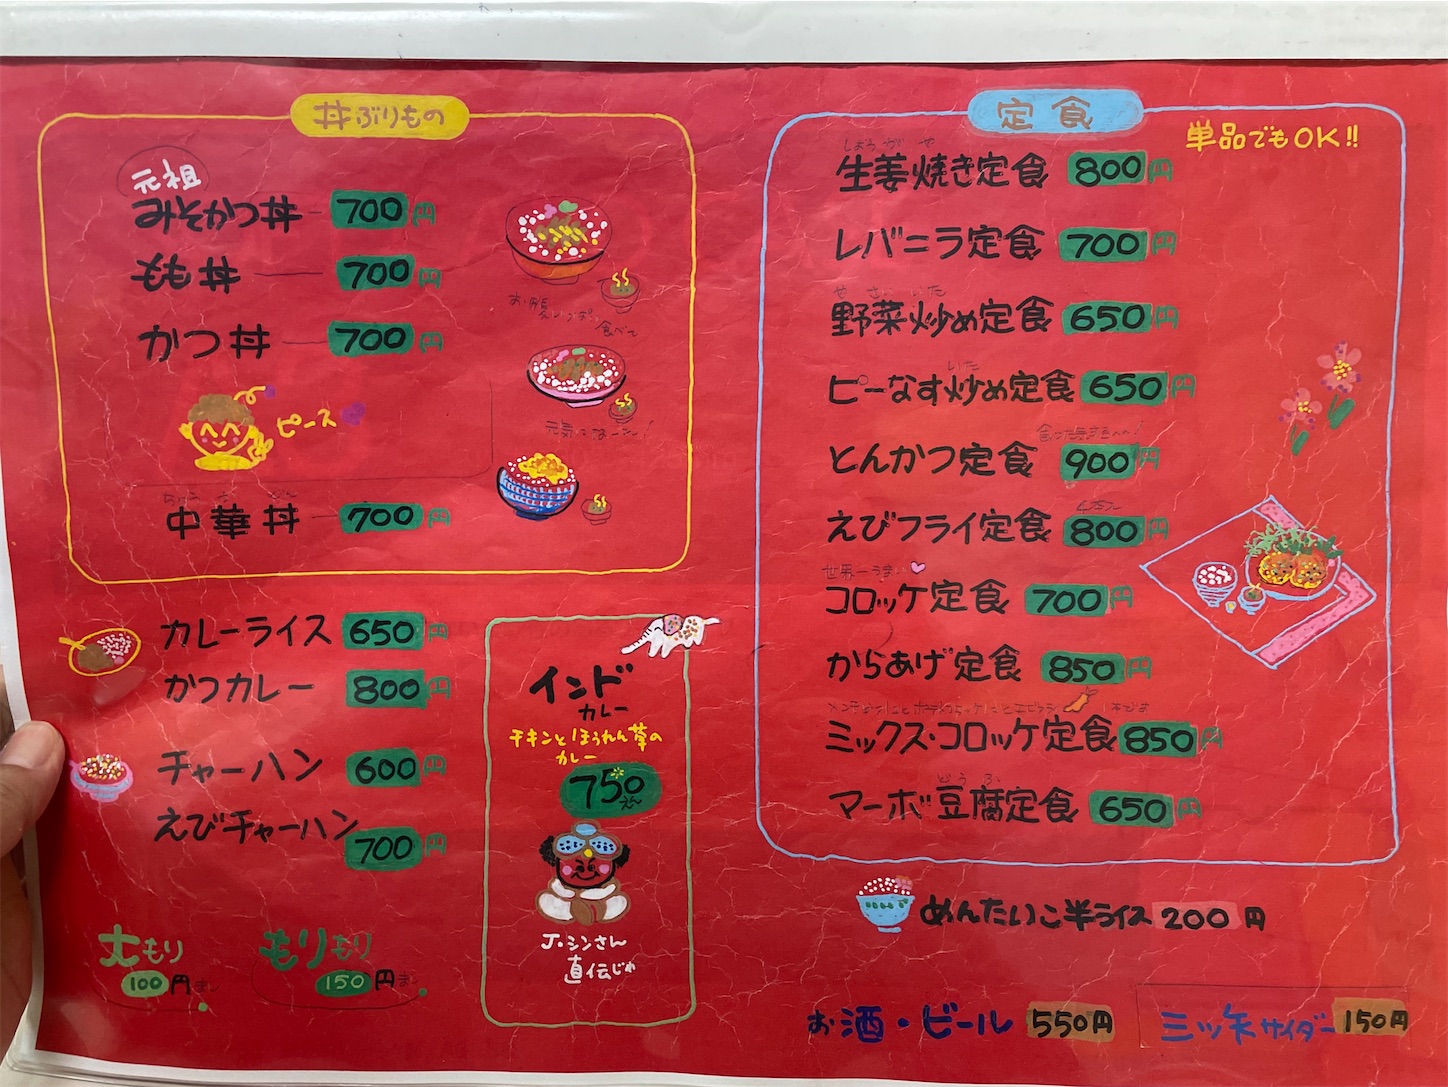 丼ぶりもの
元祖
みそかつ丼 700円
もも丼 700円
かつ丼 700円
ピース
中華丼 700円
食べて
カレーライス 650円
かつカレー 800円
チャーハン 600円
えびチャーハン 700円
大もり
100円まし
もりもり
150円まし
インド
カレー
チキンとほうれん草の
カレー
750
えん
J・シンさん
直伝じゃ
定食
単品でもOK!!
生姜焼き定食 800円
レバニラ定食 700円
野菜炒め定食 650円
いた
ピーなす炒め定食 650円
とんかつ定食 900円
えびフライ定食 800円
世界一うまい
コロッケ定食 700円
からあげ定食 850円
ミックス・コロッケ定食 850円
どうふ
マーボ豆腐定食 650円
めんたいこ半ライス 200円
お酒・ビール 550円
三ツ矢サイダー 150円